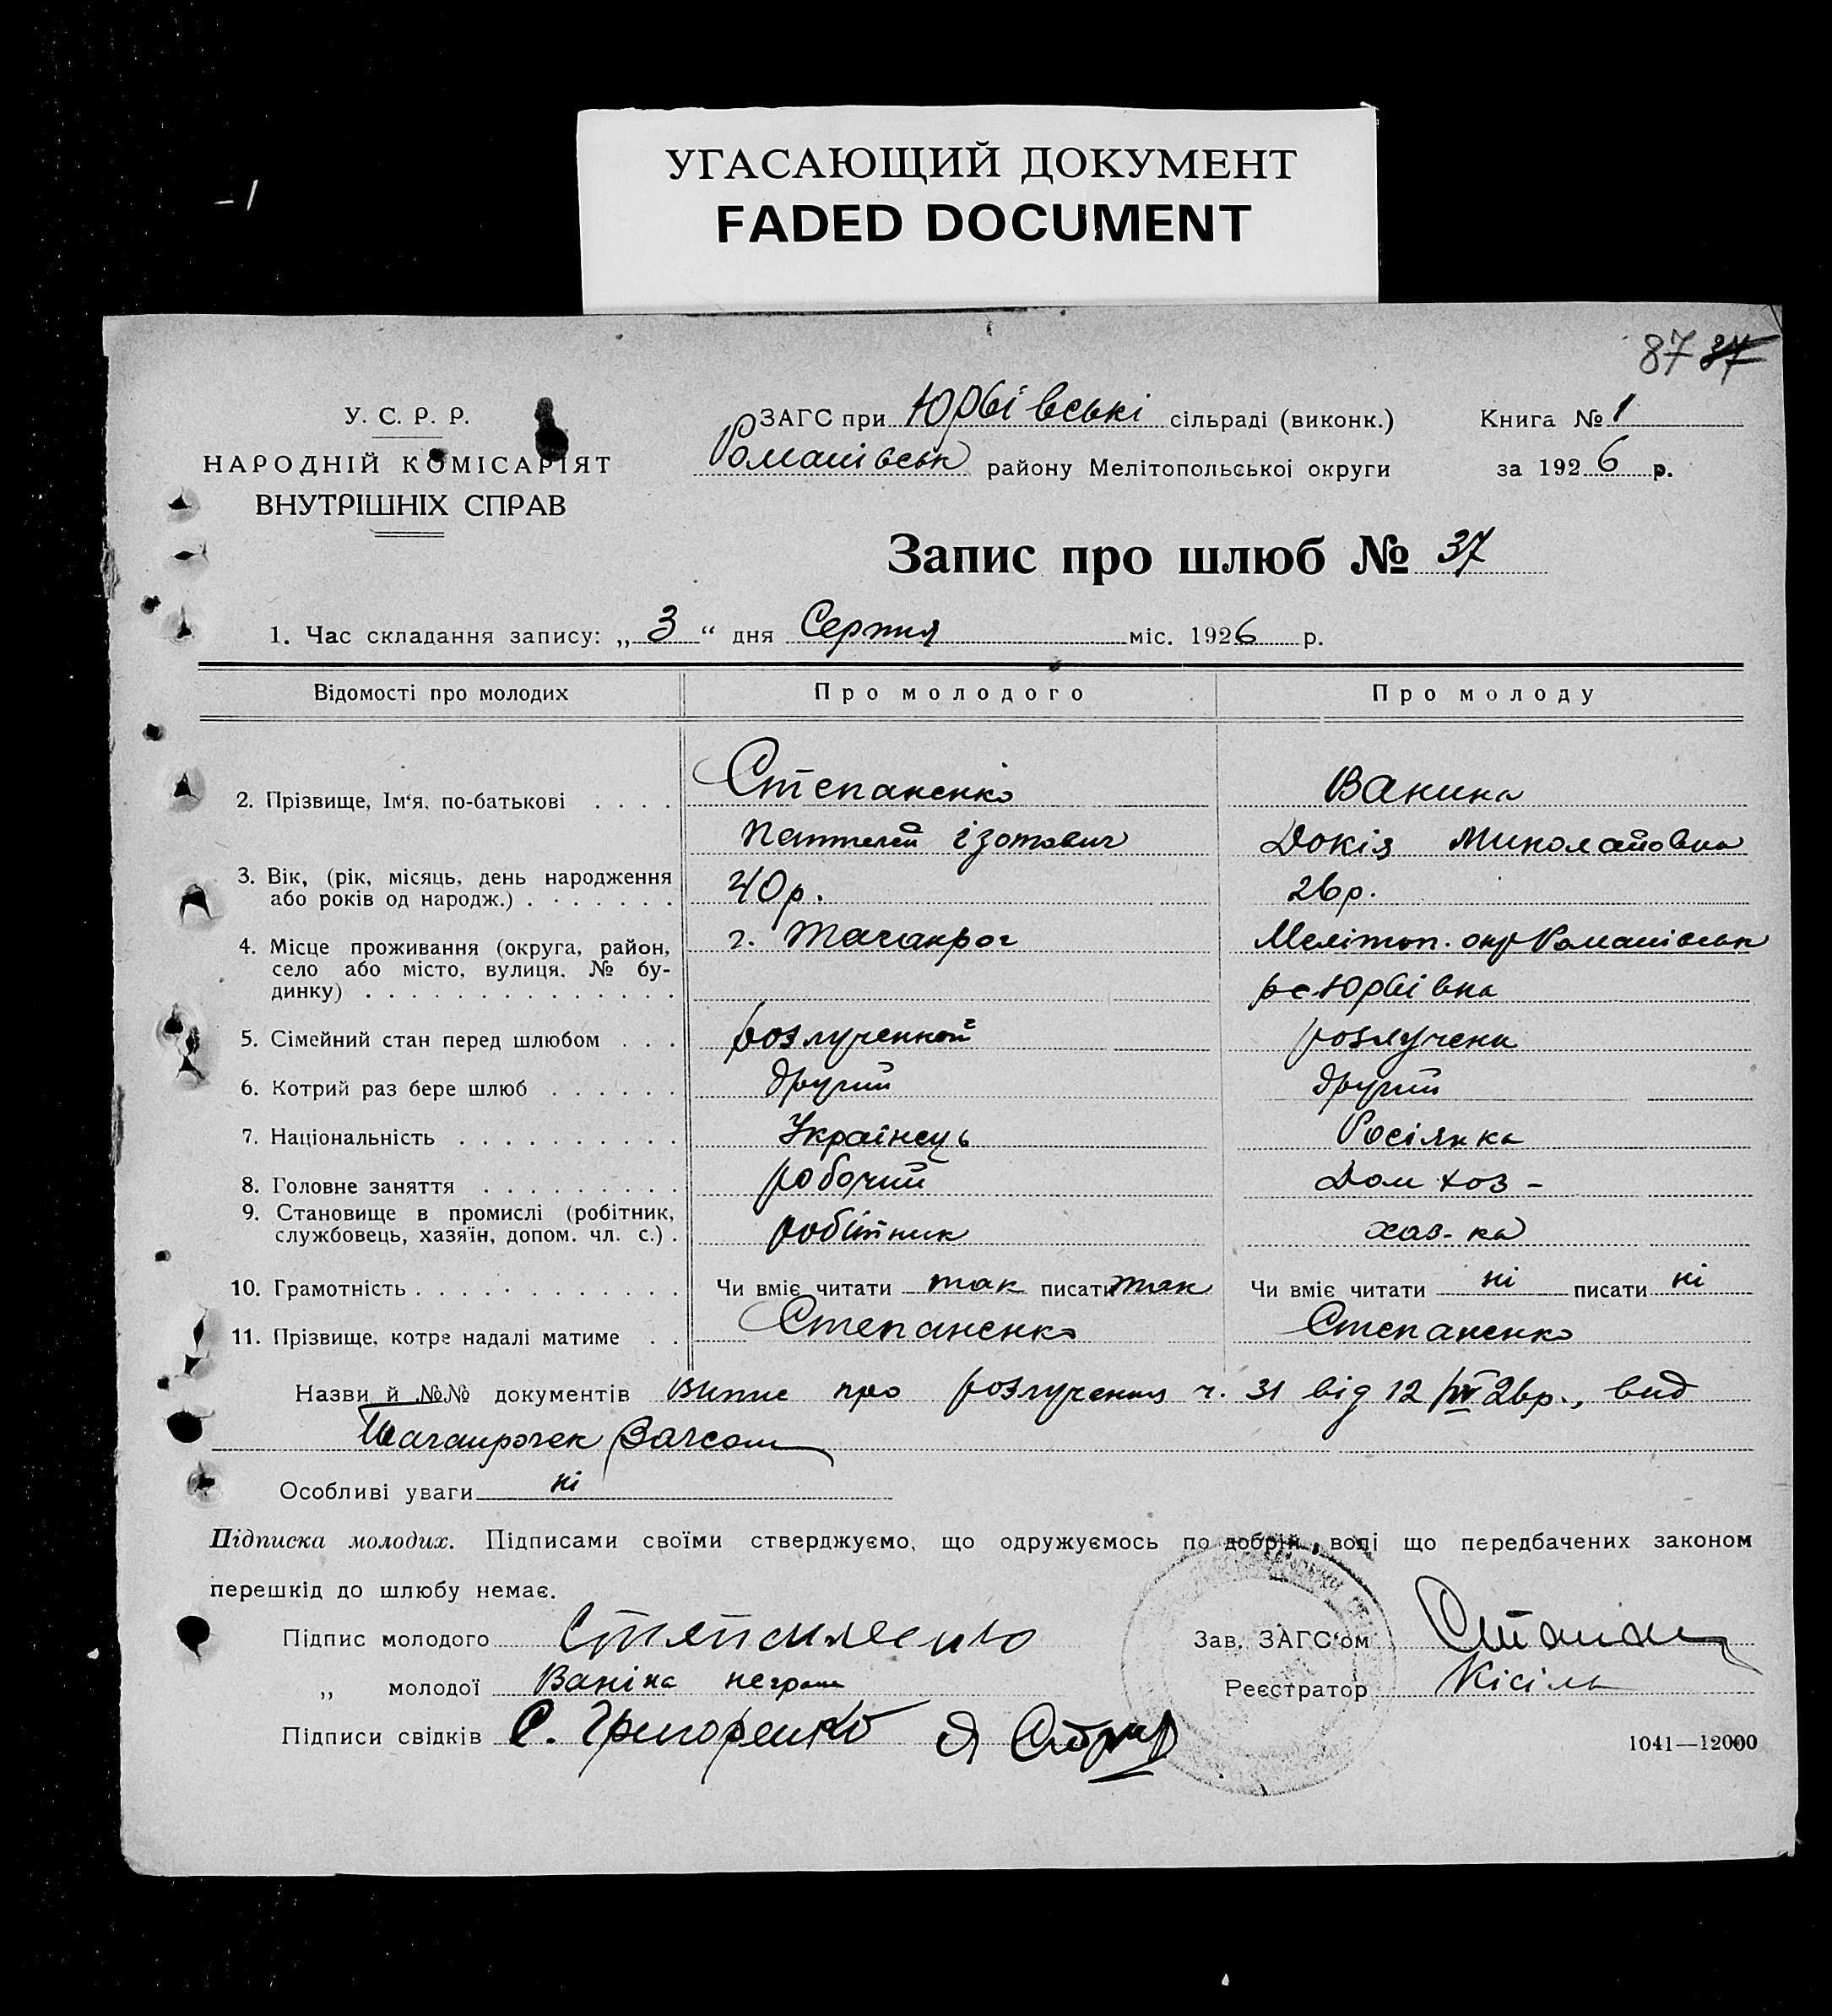 УГАСАЮЩИЙ ДОКУМЕНТ
FADED DOCUMENT
87 37
У. С. Р. Р.
НАРОДНІЙ КОМІСАРІЯТ
ВНУТРІШНІХ СПРАВ
ЗАГС при Юрбівські сільраді (виконк.)
Романівськ району Мелітопольської округи
Книга № 1
за 1926 р.
Запис про шлюб № 37
1. Час складання запису: „ 3 “ дня Серпня міс. 1926 р.
Відомості про молодих Про молодого Про молоду
2. Прізвище, Ім'я, по-батькові . . . . Степаненко Ванина
Пантелей Ізотович Докія Миколайовна
3. Вік, (рік, місяць, день народження
або років од народж.) . . . . . . . 40р. 26р.
4. Місце проживання (округа, район, г. Таганрог Мелітоп. окр Романівськ
село або місто, вулиця, № бу-
динку) . . . . . . . . . . . . . . р с. Юрбівка
5. Сімейний стан перед шлюбом . . . розлученной розлучена
6. Котрий раз бере шлюб . . . . . . другий другий
7. Національність . . . . . . . . . . Українець Росіянка
8. Головне заняття . . . . . . . . . робочий Дом хоз-
9. Становище в промислі (робітник,
службовець, хазяїн, допом. чл. с.) . робітник хаз-ка
10. Грамотність . . . . . . . . . . . . Чи вміє читати так писати так Чи вміє читати ні писати ні
11. Прізвище, котре надалі матиме . . Степаненко Степаненко
Назви й №№ документів Випис про розлучения ч. 31 від 12 26р., вид
Загсом
Особливі уваги ні
Підписка молодих. Підписами своїми стверджуємо, що одружуємось по добрій волі що передбачених законом
перешкід до шлюбу немає.
Підпис молодого Степаненко Зав. ЗАГС'ом
„ молодої Ваніна неграм Реєстратор Кісіль
Підписи свідків С. Григоренко Я
1041—12000